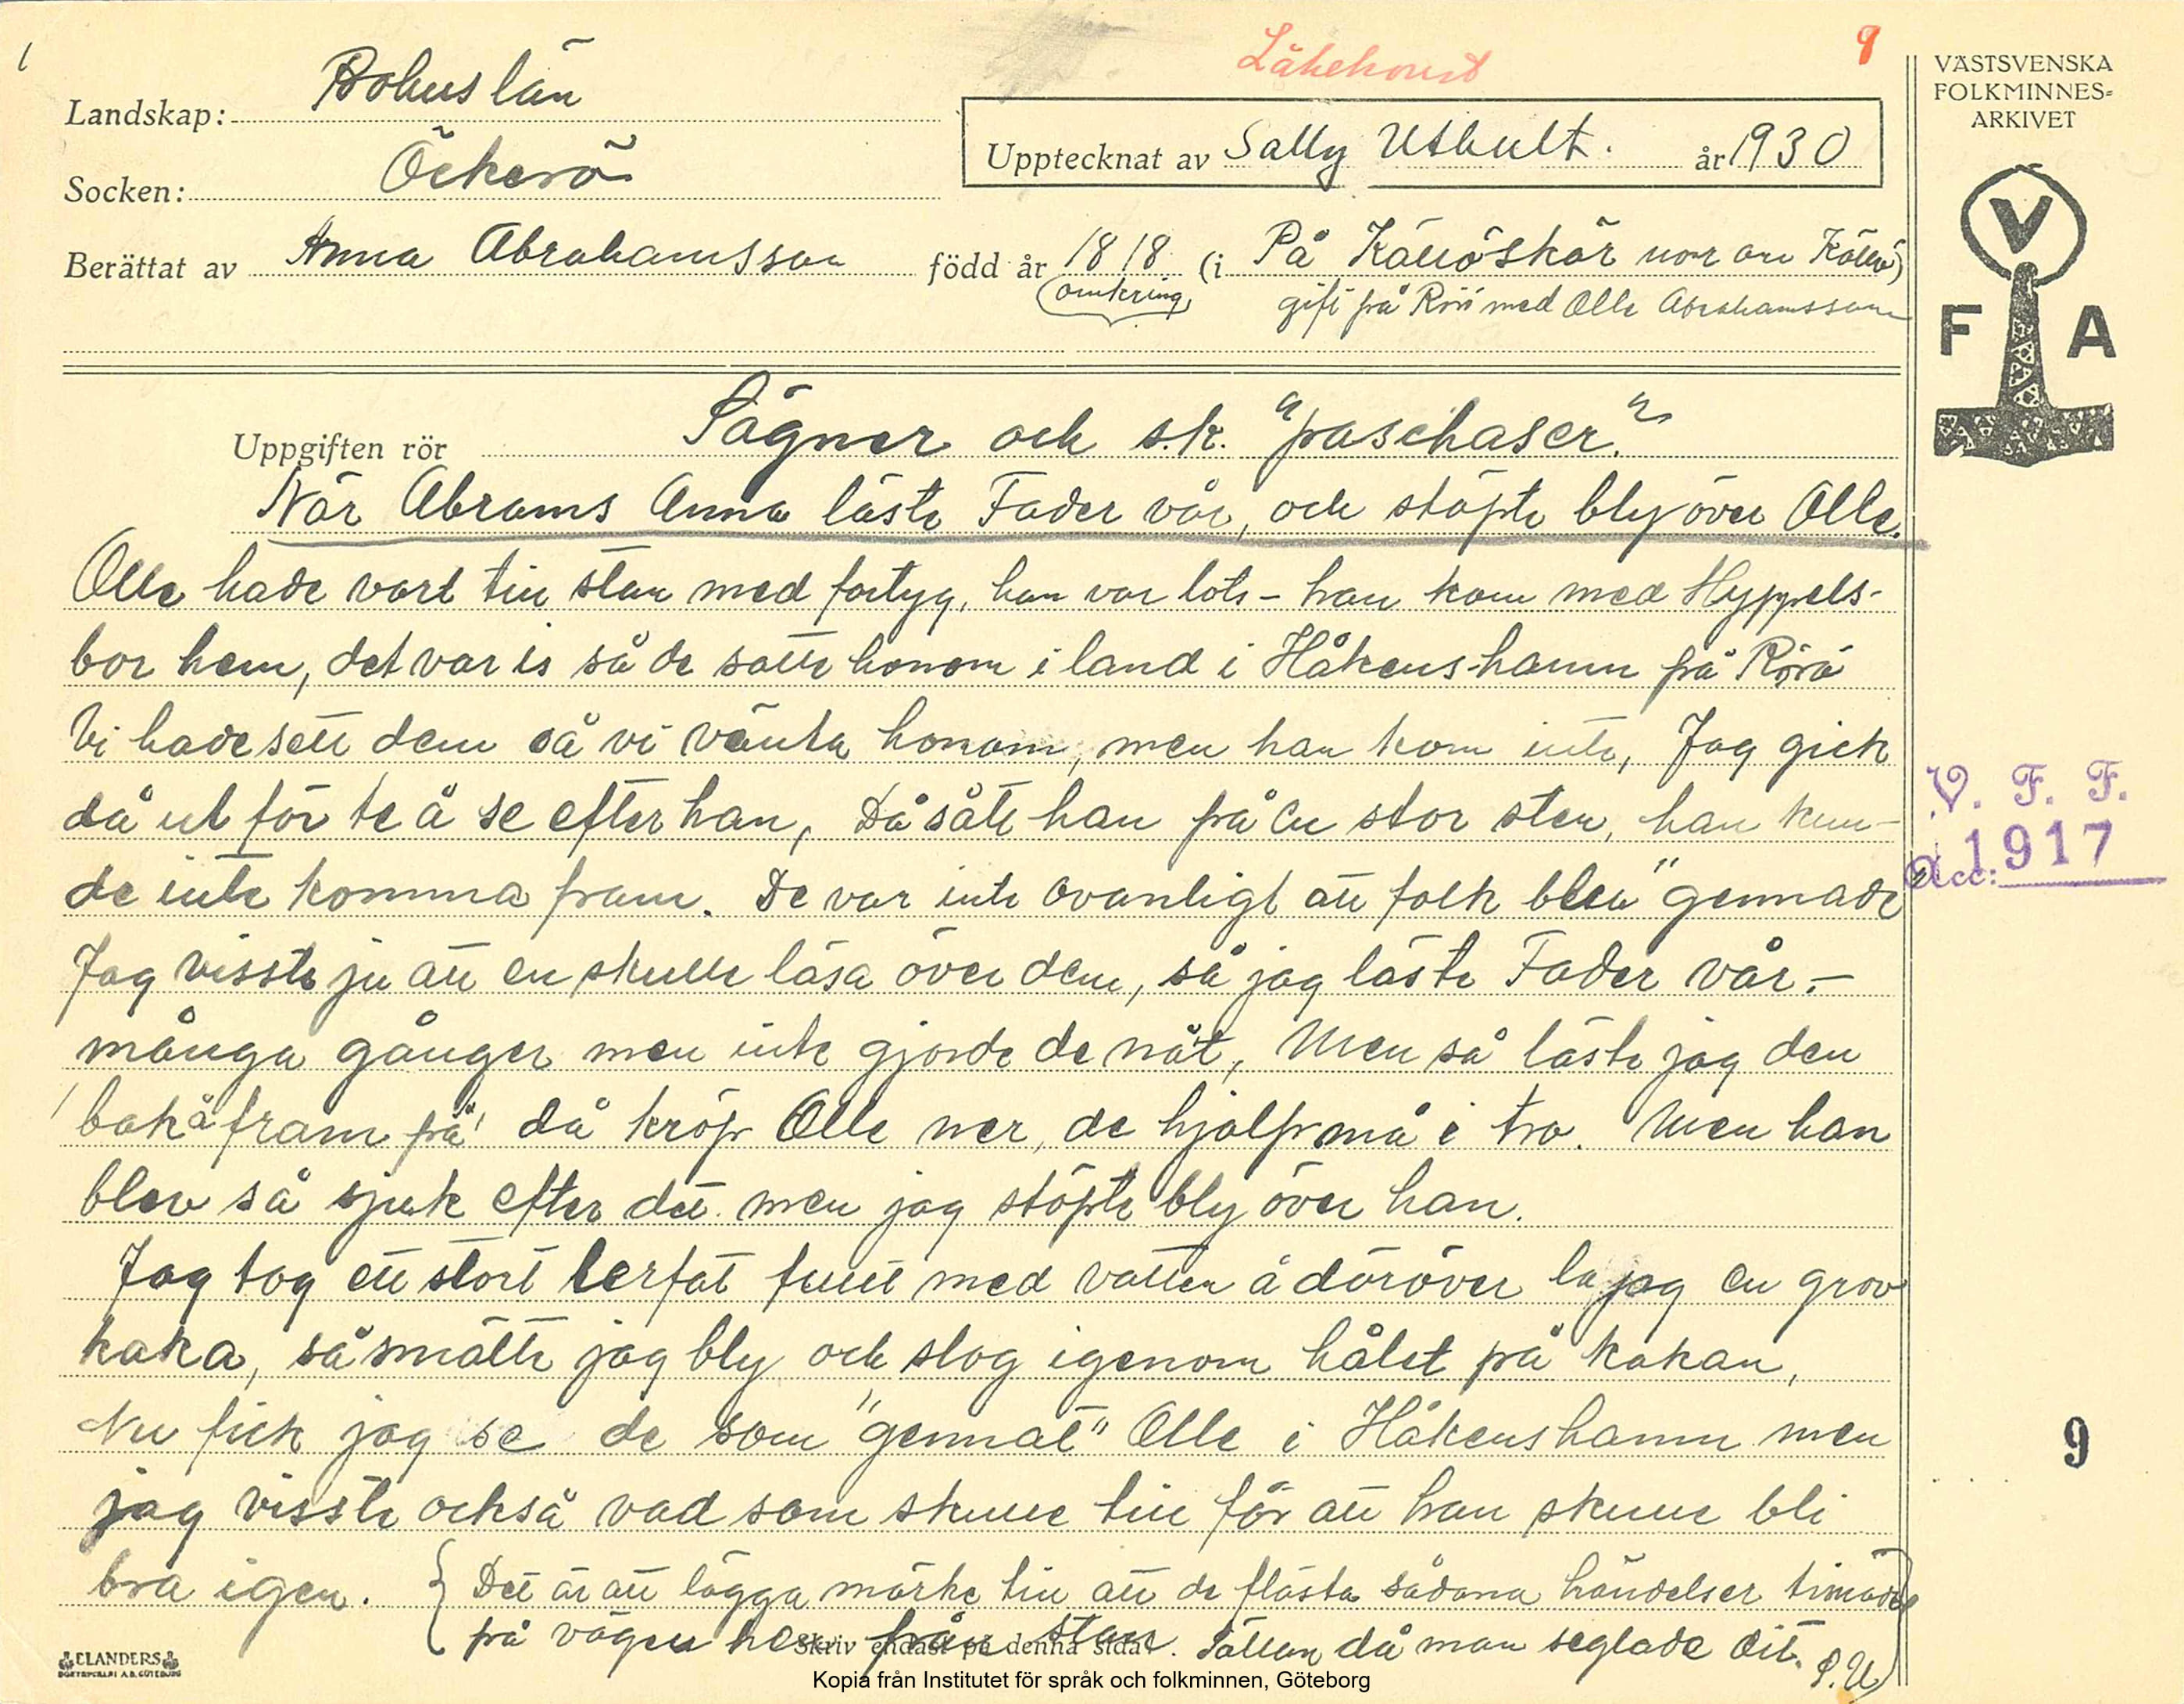 Läkekonst
9
Landskap: Bohuslän
Socken: Öckerö
Upptecknat av Sally Utbult. år 1930
Berättat av Anna Abrahamsson född år 1818 (i På Källöskär norr om Källö)
(omkring)
gift på Rörö med Olle Abrahamsson
Uppgiften rör Sägner och s.k. "paschaser."
När Abrams Anna läste Fader vår, och stöpte bly över Olle.
Olle hade vart till stan med fartyg, han var lots – han kom med Hyppels-
bor hem, det var is så de satte honom i land i Håkenshamn på Rörö
Vi hade sett dem så vi vänta honom, men han kom inte, Jag gick
då ut för te å se efter han, Då satt han på en stor sten, han kun-
de inte komma fram. De var inte ovanligt att folk blev "gennade"
Jag visste ju att en skulle läsa över dem, så jag läste Fader vår. –
många gånger men inte gjorde de nåt, Men så läste jag den
"bakåfram på" då kröp Olle ner, de hjalp må i tro. Men han
blev så sjuk efter det men jag stöpte bly över han.
Jag tog ett stort lerfat fullt med vatten å däröver la jag en grov
kaka, så smälte jag bly och slog igenom hålet på kakan,
Nu fick jag se de som "gennat" Olle i Håkenshamn men
jag visste också vad som skulle till för att han skulle bli
bra igen. { Det är att lägga märke till att de flästa sådana händelser timade
på vägen hem från stan. Sällan då man seglade dit. S.U }
Skriv endast på denna sida!
ELANDERS
BOKTRYCKERI A.B. GÖTEBORG
VÄSTSVENSKA
FOLKMINNES-
ARKIVET
V
F A
V. F. F.
Acc: 1917
9
Kopia från Institutet för språk och folkminnen, Göteborg